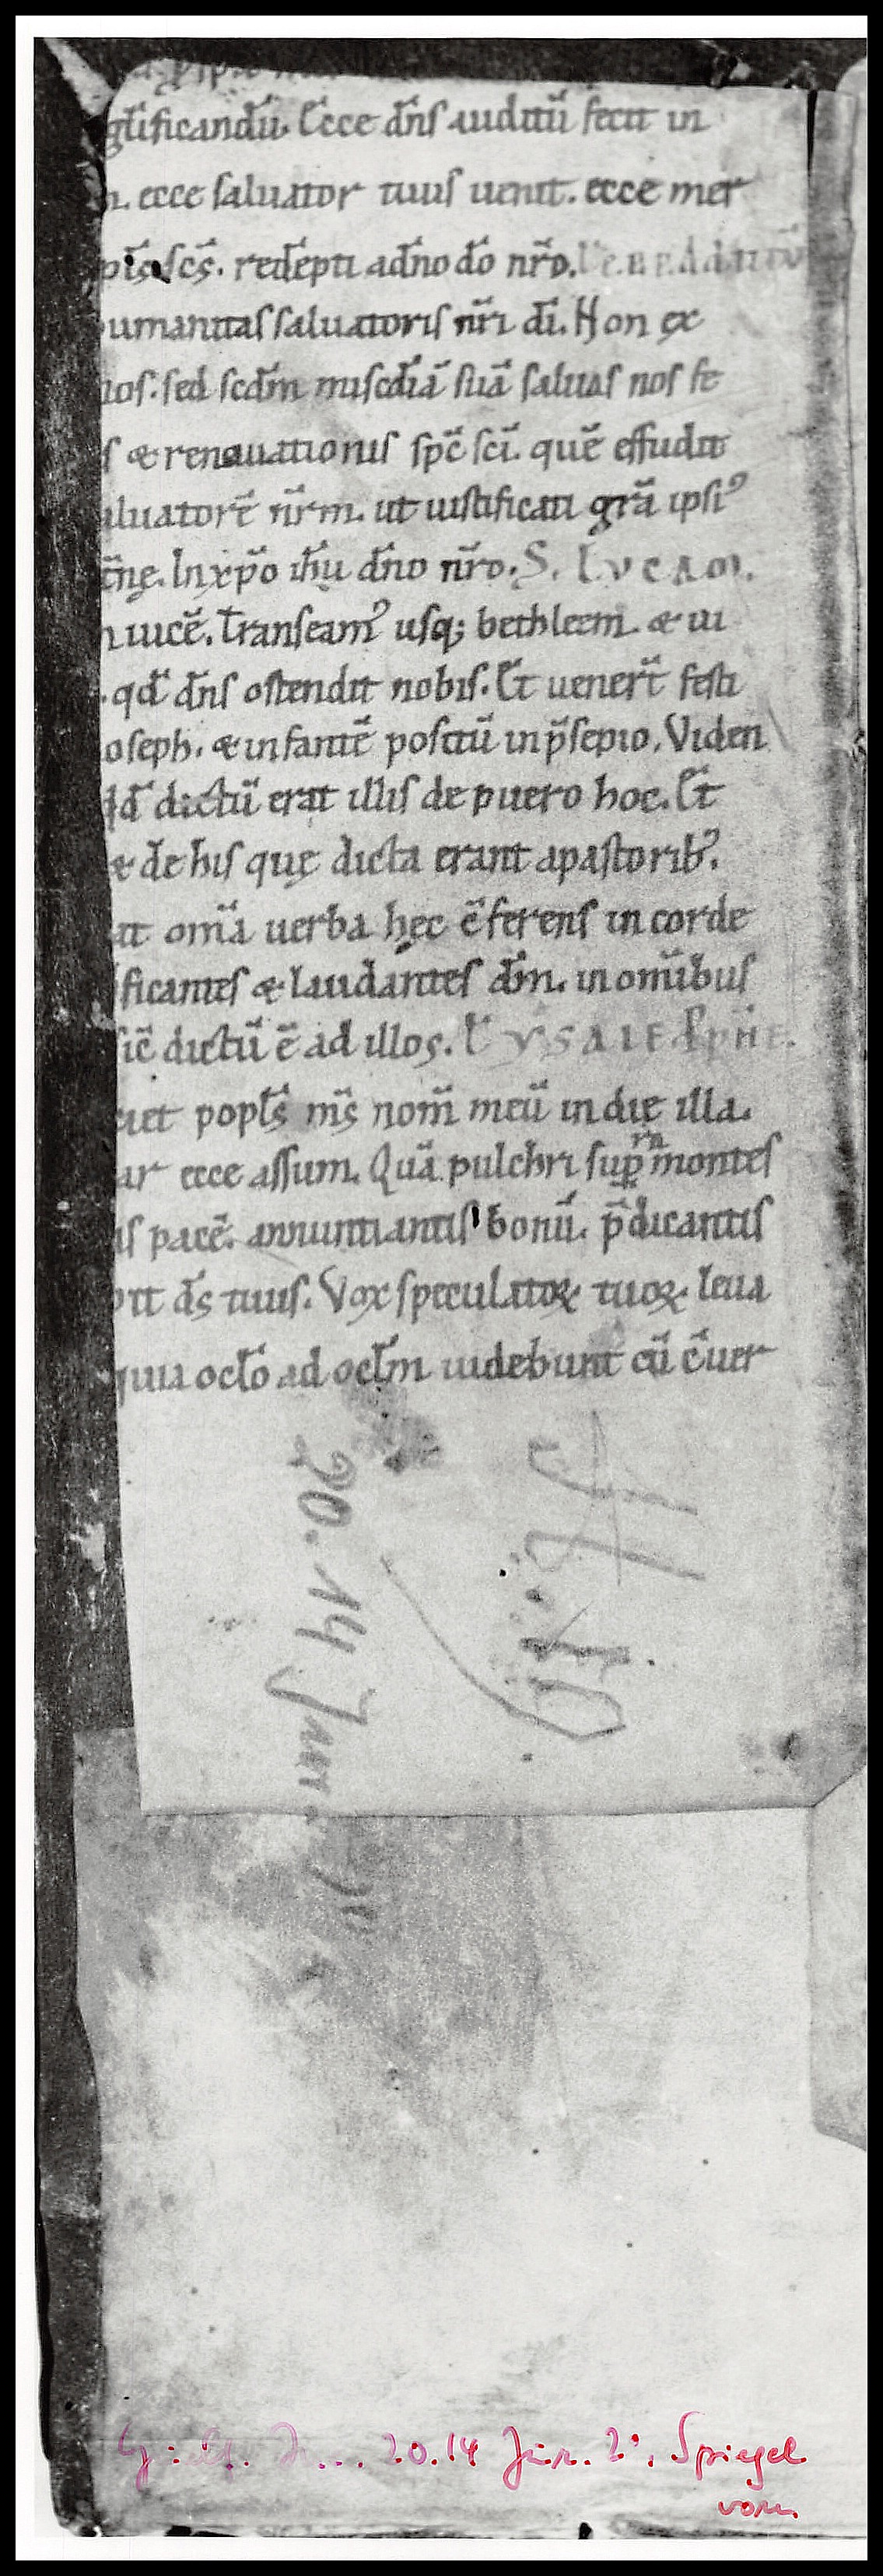 gl̄ificandū. Ecce dn̄s auditū fecit in
ecce saluator tuus uenit. ecce mer
pl̄s sc̄s. redēpti a dn̄o dō nr̄o.
umanitas saluatoris nr̄i dī. Non ex
nos. sed scdm̄ misc̄diā suā saluos nos fe
s & renouationis sp̄c sc̄i. quē effudit
aluatorē nr̄m. ut iustificati gr̄a ipsiꝰ
t̄nę. In xp̄o ih̄u dn̄o nr̄o. S. LVCAM.
inuicē. Transeamꝰ usq; bethleem. & ui
. qd̄ dn̄s ostendit nobis. Et uener̄t festi
oseph. & infantē positū in p̄sepio. Viden
qd̄ dictū erat illis de puero hoc. Et
& de his quę dicta erant a pastorib.ꝰ
at om̄a uerba hęc c̄ferens in corde
ificantes & laudantes dm̄. in om̄ibus
sic̄ dictū ē ad illos. L YSAIE PPHE.
ciet popl̄s m̄s nom̄ meū in die illa.
ar ecce assum. Quā pulchri sup̄ montes
is pacē. annuntiantis bonū. p̄dicantis
bit ds̄ tuus. Vox speculatoꝝ tuoꝝ. leua
quia ocl̄o ad ocl̄m uidebunt cū c̄uer
20. 14 Jur. 2°
20.14 Jur. 2°. Spiegel
vorn.